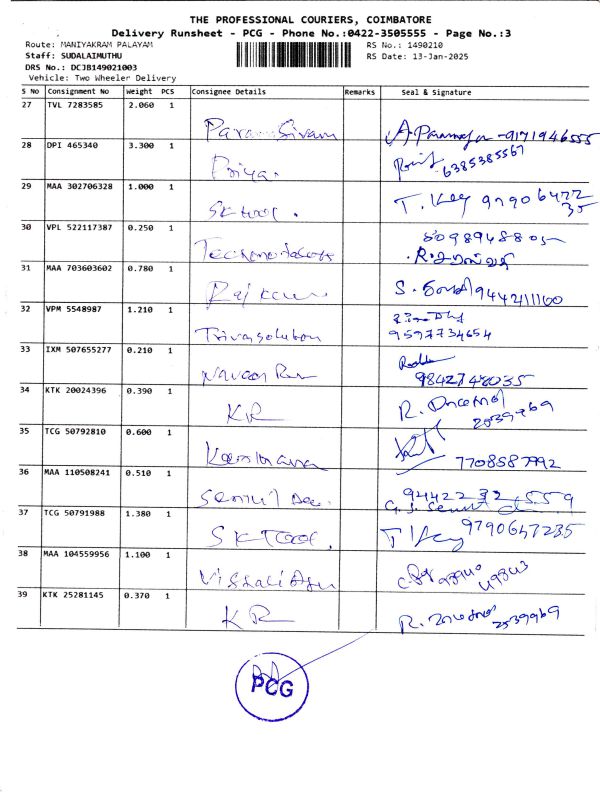 THE PROFESSIONAL COURIERS, COIMBATORE
Delivery Runsheet - PCG - Phone No.:0422-3505555 - Page No.:3
Route: MANIYAKRAM PALAYAM RS No.: 1490210
Staff: SUDALAIMUTHU RS Date: 13-Jan-2025
DRS No.: DCJB149021003
Vehicle: Two Wheeler Delivery
S No Consignment No Weight PCS Consignee Details Remarks Seal & Signature
27 TVL 7283585 2.060 1
Param Sivam -9171946555
28 DPI 465340 3.300 1
Priya. 6385385567
29 MAA 302706328 1.000 1
SK Tool. T. Key 97906472
35
30 VPL 522117387 0.250 1
8098948805
31 MAA 703603602 0.780 1
S. 9442411160
32 VPM 5548987 1.210 1
Trivasolution 9597734654
33 IXM 507655277 0.210 1
Naveen 9842748035
34 KTK 20024396 0.390 1
KR R. 2539969
35 TCG 50792810 0.600 1
7708587992
36 MAA 110508241 0.510 1
Senthil 94422 32 559
37 TCG 50791988 1.380 1
SK Tool. T. Key 9790647235
38 MAA 104559956 1.100 1
Vishali
39 KTK 25281145 0.370 1
KR R. 2539969
PCG